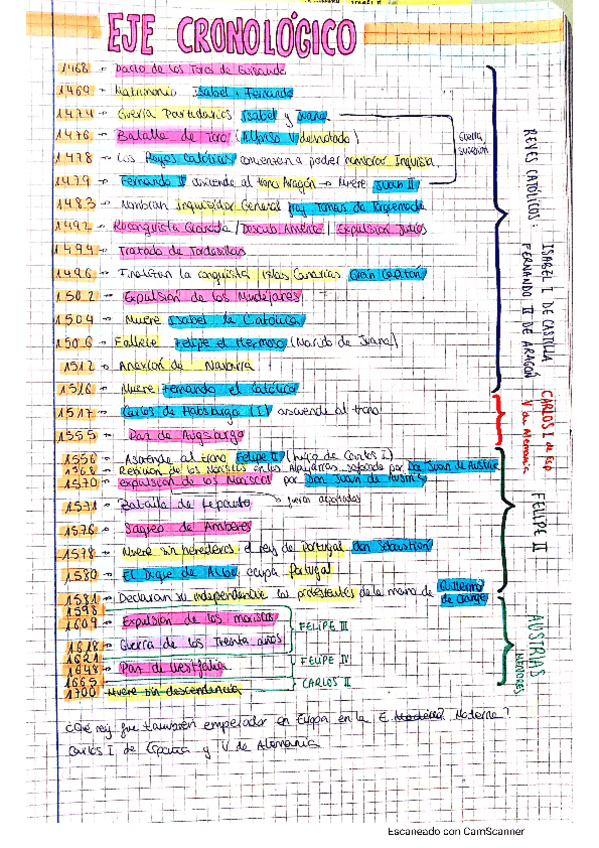 EJE CRONOLÓGICO
1468 → Pacto de los Toros de Guisando
1469 → Matrimonio Isabel + Fernando
1474 → Guerra Partidarios Isabel y Juana
1476 → Batalla de Toro (Alfonso V derrotado)
Guerra sucesión
1478 → Los Reyes católicos comienzan a poder nombrar Inquisi.
1479 → Fernando II asciende al trono Aragón → Muere Juan II
1483 → Nombran inquisidor General fray Tomas de Torquemada
1492 → Reconquista Granada / Descub. América / Expulsión Judíos
1494 → Tratado de Tordesillas
1496 → Finalizan la conquista Islas Canarias Gran Capitán
1502 → Expulsión de los Mudejares
1504 → Muere Isabel la Católica
1506 → Fallece Felipe el Hermoso (Marido de Juana)
1512 → Anexión de Navarra
1516 → Muere Fernando el Católico
REYES CATÓLICOS: ISABEL I DE CASTILLA
FERNANDO II DE ARAGÓN
1517 → Carlos de Habsburgo (I) asciende al trono
1555 → Paz de Augsburgo
CARLOS I de Esp
V de Alemania
1556 → Asciende al trono Felipe II (hijo de Carlos I)
1568 → Rebelión de los Moriscos en las Alpujarras sofocada por Don Juan de Austria
1570 → expulsión de los Moriscos por Don Juan de Austria
1571 → Batalla de Lepanto
1576 → Saqueo de Amberes
1578 → Muere sin herederos el rey de Portugal don Sebastián
1580 → El Duque de Alba ocupa Portugal
1581 → Declaran su independencia los protestantes de la mano de Guillermo de Orange
FELIPE II
1598
1609 → Expulsión de los moriscos
FELIPE III
1618 → Guerra de los Treinta años
1621
1648 → Paz de Westfalia
FELIPE IV
1665
1700 → Muere sin descendencia
CARLOS II
AUSTRIAS MENORES
¿Qué rey fue también emperador en Europa en la E. Moderna?
Carlos I de España y V de Alemania
Escaneado con CamScanner